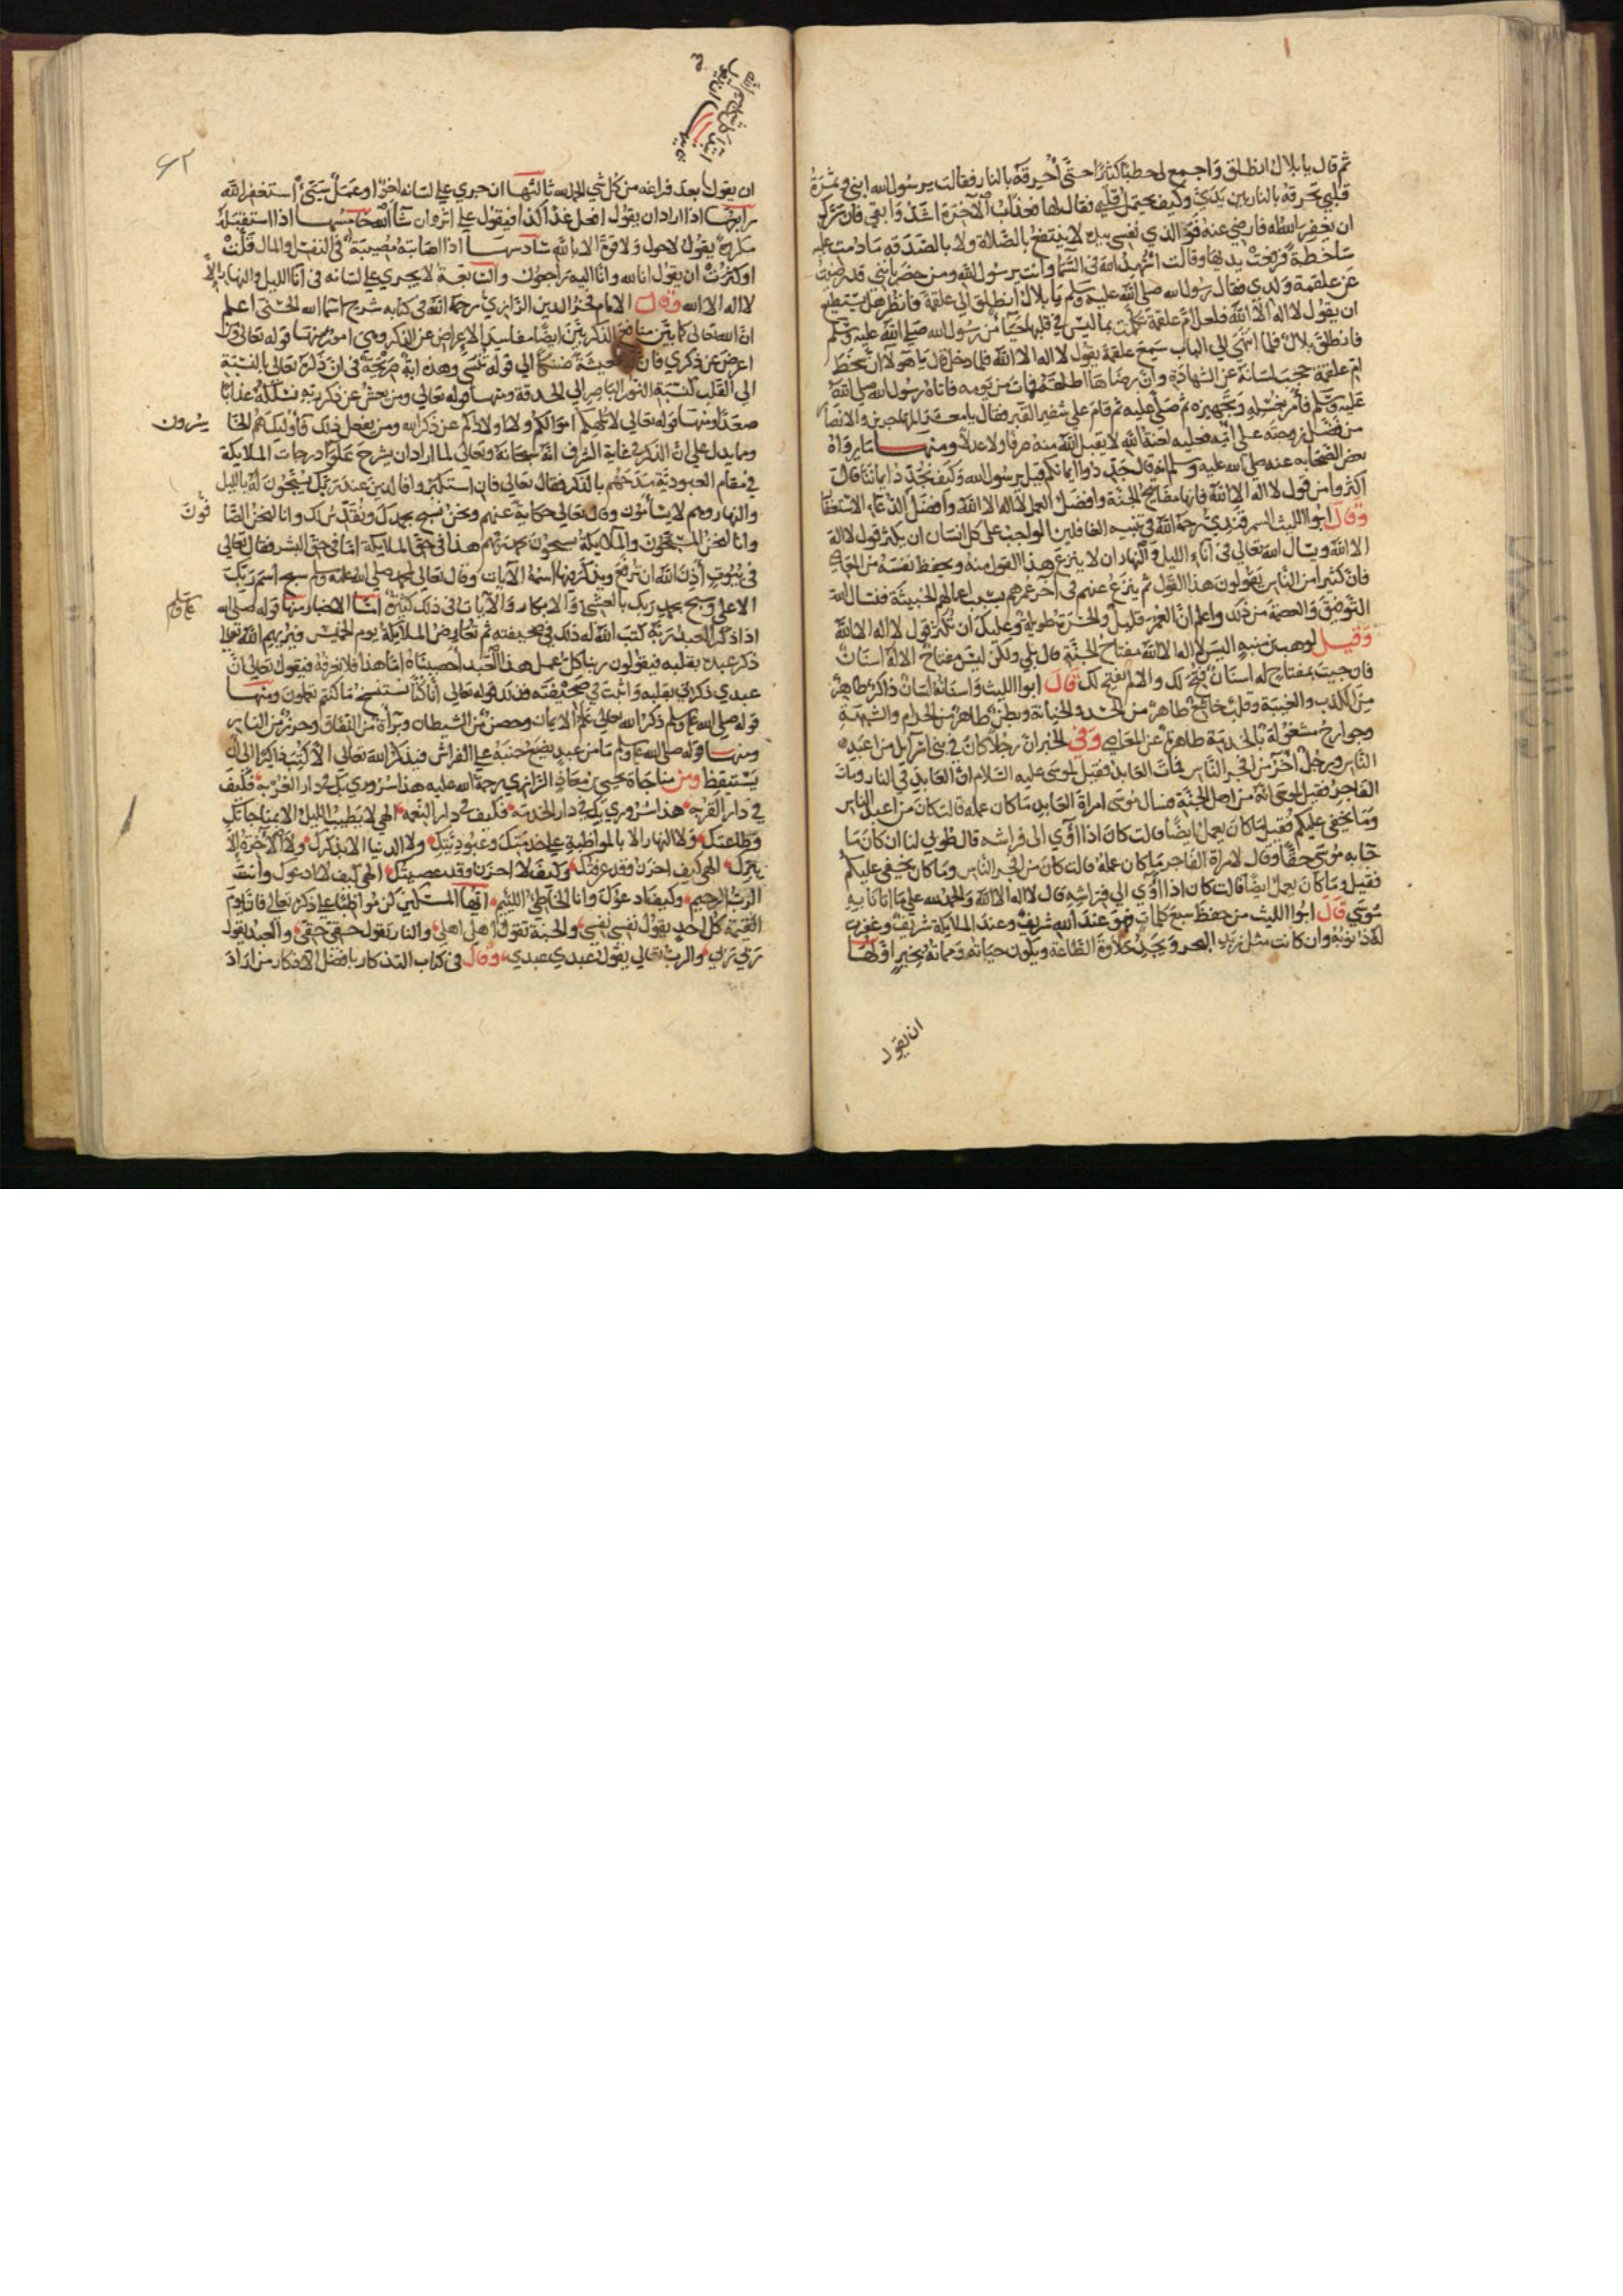 ثم قال يا بلال انطلق واجمع لي حطبا كثيرا حتى أحرقه بالنار فقالت يرسول الله ابني وثمرة
قلبي تحرقه بالنار بين يدي وكيف يحتمل قلبي فقال لها فعذاب الآخرة اشد وابقي فان سرك
ان يغفر الله له فارضي عنه فوالذي نفسي بيده لا ينتفع بالصلاة ولا بالصدقة ما دمت عليه
ساخطة فرفعت يديها وقالت اشهد الله في السما وانت يرسول الله ومن حضرنا انني قد رضيت
عن علقمة ولدي فقال رسول الله صلى الله عليه وسلم يا بلال انطلق الي علقمة فانظر هل يستطيع
ان يقول لا اله الا الله فلعل ام علقمة تكلمت بما ليس في قلبها حيآ من رسول الله صلى الله عليه وسلم
فانطلق بلال فلما انتهى الي الباب سمع علقمة يقول لا اله الا الله فلما دخل قال يا هولآ ان سخط
ام علقمة حجب لسانه عن الشهادة وان رضاها اطلقه فمات من يومه فاتاه رسول الله صلى الله
عليه وسلم فأمر بغسله وتجهيزه ثم صلى عليه ثم قام على شفير القبر فقال يا معشر المهاجرين والانصار
من فضل زوجته على امه فعليه لعنة الله لا يقبل الله منه صرفا ولا عدلا ومنها ما رواه
بعض الصحابه عنه صلى الله عليه وسلم انه قال جددوا ايمانكم قيل يرسول الله وكيف نجدد ايماننا قال
اكثروا من قول لا اله الا الله فانها مفاتيح الجنة وافضل العمل لا اله الا الله وافضل الدعاء الاستغفار
وقال ابوا الليث السمرقندي رحمه الله في تنبيه الغافلين الواجب على كل انسان ان يكثر قول لا اله
الا الله ويسال الله تعالي في انآء الليل والنهار ان لا ينزع هذا القول منه ويحفظ نفسه من المعاصي
فان كثيرا من الناس يقولون هذا القول ثم ينزع عنهم في آخر عمرهم بسبب اعمالهم الخبيثة فنسال الله
التوفيق والعصمة من ذلك واعلم ان العمر قليل والحسرة طويلة وعليك ان تكثر قول لا اله الا الله
وقيل لوهب بن منبه اليس لا اله الا الله مفتاح الجنة قال بلي ولكن ليس مفتاح الا له اسنان
فان جيت بمفتاح له اسنان فتح لك والا لم يفتح لك قال ابوا الليث واسنانه لسان ذاكر طاهر
من الكذب والغيبة وقلب خاشع طاهر من الحسد والخيانة وبطن طاهر من الحرام والشبهة
وجوارح مشغولة بالخدمة طاهرة عن المعاصي وفي الخبر ان رجلا كان في بني اسرآيل من اعبد
الناس ورجل آخر من افجر الناس فمات العابد فقيل لموسى عليه السلام ان العابد في النار ومات
الفاجر فقيل لموسى انه من اهل الجنة فسال موسى امراة العابد ما كان عمله قالت كان من اعبد الناس
وما يخفى عليكم فقيل ما كان يعمل ايضا قالت كان اذا آوي الى فراشه قال طوبي لنا ان كان ما
جآ به موسى حقا وقال لامراة الفاجر ما كان عمله قالت كان من افجر الناس وما كان يخفي عليكم
فقيل وما كان يعمل ايضا قالت كان اذا آوي الي فراشه قال لا اله الا الله والحمد لله على ما اتانا به
موسي قال ابوا الليث من حفظ سبع كلمات فهو عند الله شريف وعند الملآيكة شريف وغفرت
له ذنوبه وان كانت مثل زبد البحر ويجد حلاوة الطاعة ويكون حياته ومماته بخير اولها
ان يقول
٤٢
ان يقول بعد فراغه من كل شي الحمد لله ثالثها ان جري على لسانه لغو او عمل سيئ استغفر الله
رابعها اذا اراد ان يقول افعل غدا كذا فيقول على اثره ان شآ الله خامسها اذا استقبله
مكروه يقول لا حول ولا قوة الا بالله سادسها اذا اصابته مصيبة في النفس والمال قلت
او كثرت ان يقول انا لله وانا اليه راجعون والسابعة لا يجري على لسانه في آنا الليل والنهار الا
لا اله الا الله وقال الامام فخر الدين الرازي رحمه الله في كتابه شرح اسما الله الحسنى اعلم
ان الله تعالى كما بين منافع الذكر بين ايضا مفاسد الاعراض عن الذكر وهي امور منها قوله تعالى ومن
اعرض عن ذكري فان معيشة ضنكا الي قوله تنسى وهذه آية صريحة في ان ذكره تعالى بالنسبة
الي القلب كنسبة النور الباصر الي الحدقة ومنها قوله تعالي ومن يعش عن ذكر ربه نسلكه عذابا
صعدا ومنها قوله تعالى لا تلهكم اموالكم ولا اولادكم عن ذكر الله ومن يفعل ذلك فأولئك هم الخا
سرون
ومما يدل على ان الذكر في غاية الشرف انه سبحانه وتعالى لما اراد ان يشرح علو درجات الملايكة
في مقام العبودية مدحهم بالذكر فقال تعالى فان استكبروا فالذين عند ربك يسبحون له بالليل
والنهار وهم لا يسأمون وقال تعالى حكاية عنهم ونحن نسبح بحمدك ونقدس لك وانا لنحن الصا
فون
وانا لنحن المسبحون والملايكة يسبحون بحمد ربهم هذا في حق الملايكة اما في حق البشر فقال تعالي
في بيوت أذن الله ان ترفع ويذكر فيها اسمه الآيات وقال تعالى لمحمد صلى الله عليه وسلم سبح اسم ربك
الاعلى وسبح بحمد ربك بالعشي والابكار والآيات في ذلك كثيرة امآ الاخبار منها قوله صلى الله
عليه وسلم
اذا ذكر العبد ربه كتب الله له ذلك في صحيفته ثم تعارض الملآيكة يوم الخميس فيريهم الله تعالى
ذكر عبده بقلبه فيقولون ربنا كل عمل هذا العبد احصيناه اما هذا فلا نعرفه فيقول تعالي ان
عبدي ذكرني بقلبه واثبت في صحيفته فذلك قوله تعالى انا كنا نستنسخ ما كنتم تعملون ومنها
قوله صلى الله عليه وسلم ذكر الله تعالى علم الايمان وحصن من الشيطان وبرآءة من النفاق وحرز من النار
ومنها قوله صلى الله عليه وسلم ما من عبد يضع جنبه على الفراش فيذكر الله تعالى الا كتب ذاكرا الى ان
يستيقظ ومن مناجاة يحيى بن معاذ الرازي رحمة الله عليه هذا سروري بك في دار الغربة فكيف
في دار القربه هذا سروري بك في دار الخدمة فكيف في دار النعمه الهي لا يطيب الليل الا بمناجاتك
وطاعتك ولا النهار الا بالمواظبة على خدمتك وعبوديتك ولا الدنيا الا بذكرك ولا الآخرة الا
ببرك الهي كيف احزن وقد عرفتك وكيف لا احزن وقد عصيتك الهي كيف لا ادعوك وانت
الرب الرحيم وكيف ادعوك وانا الخاطئ اللئيم ايها المسكين كن مواظبا على ذكره تعالى فان يوم
القيمة كل احد يقول نفسي نفسي والجنة تقول اهلي اهلي والنار تقول حقي حقي والعبد يقول
ربي ربي والرب تعالي يقول عبدي عبدي وقال في كتاب التذكار بافضل الاذكار من اراد